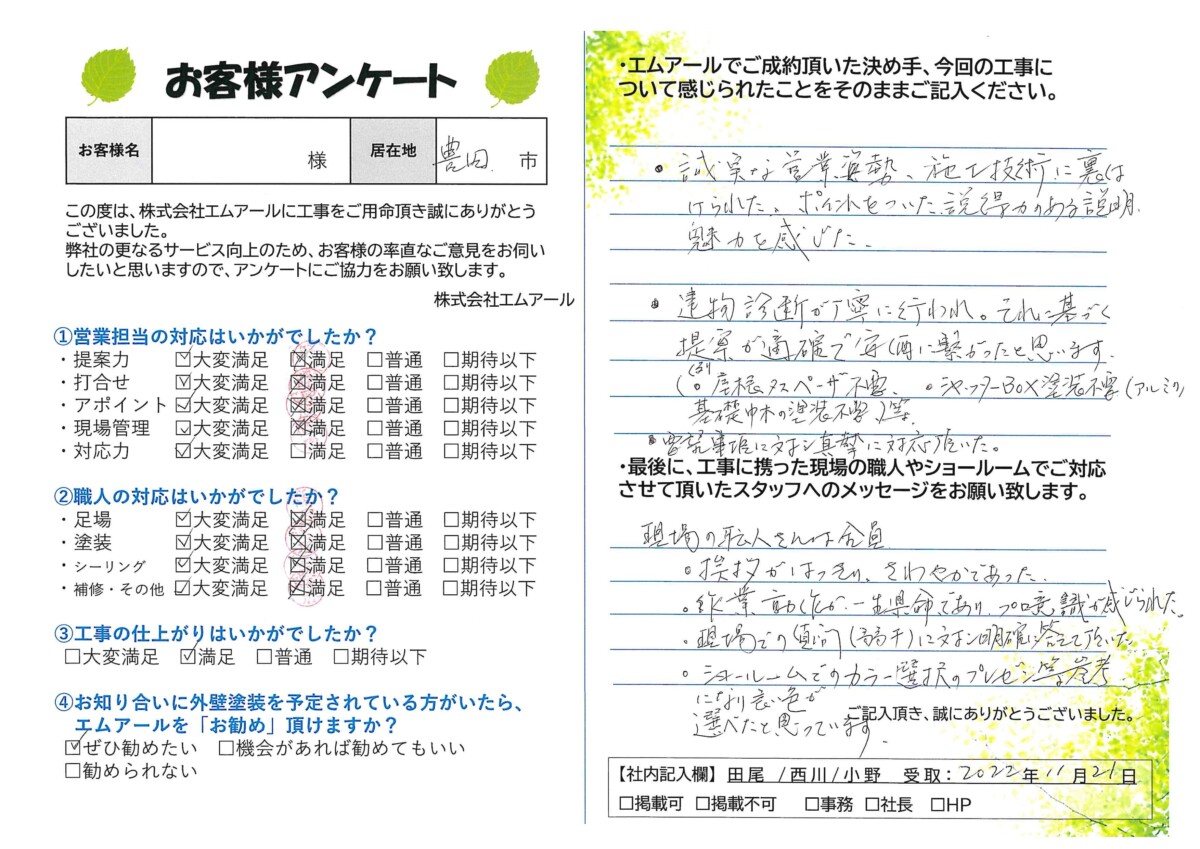 お客様アンケート
お客様名 様 居在地 豊田 市
この度は、株式会社エムアールに工事をご用命頂き誠にありがとう
ございました。
弊社の更なるサービス向上のため、お客様の率直なご意見をお伺い
したいと思いますので、アンケートにご協力をお願い致します。
株式会社エムアール
①営業担当の対応はいかがでしたか？
・提案力 ☑大変満足 ☒満足 □普通 □期待以下
・打合せ ☑大変満足 ☒満足 □普通 □期待以下
・アポイント ☑大変満足 ☒満足 □普通 □期待以下
・現場管理 ☑大変満足 ☒満足 □普通 □期待以下
・対応力 ☑大変満足 □満足 □普通 □期待以下
②職人の対応はいかがでしたか？
・足場 ☑大変満足 ☒満足 □普通 □期待以下
・塗装 ☑大変満足 ☒満足 □普通 □期待以下
・シーリング ☑大変満足 ☒満足 □普通 □期待以下
・補修・その他 ☑大変満足 ☒満足 □普通 □期待以下
③工事の仕上がりはいかがでしたか？
□大変満足 ☑満足 □普通 □期待以下
④お知り合いに外壁塗装を予定されている方がいたら、
エムアールを「お勧め」頂けますか？
☑ぜひ勧めたい □機会があれば勧めてもいい
□勧められない
・エムアールでご成約頂いた決め手、今回の工事に
ついて感じられたことをそのままご記入ください。
• 誠実な営業姿勢、施工技術に裏は
けられた、ポイントをついた説得力のある説明
魅力を感じた。
• 建物診断が丁寧に行われ。それに基づく
提案が適確で安心に繋がったと思います。
(例 ◦屋根タスペーサ不要、 ◦シャッターBOX塗装不要(アルミ
基礎巾木の塗装不要)等。
• に対し真摯に対応頂いた。
・最後に、工事に携った現場の職人やショールームでご対応
させて頂いたスタッフへのメッセージをお願い致します。
現場の職人さんは全員
◦挨拶がはっきり、さわやかであった。
◦作業動作が一生県命であり、プロ意識が感じられた。
◦現場での質問(若干)に対し明確に答えて頂いた。
◦ショールームでのカラー選択のプレゼン等参考
になり良い色が
選べたと思っています。
ご記入頂き、誠にありがとうございました。
【社内記入欄】田尾 /西川/小野 受取：2022年11月21日
□掲載可 □掲載不可 □事務 □社長 □HP